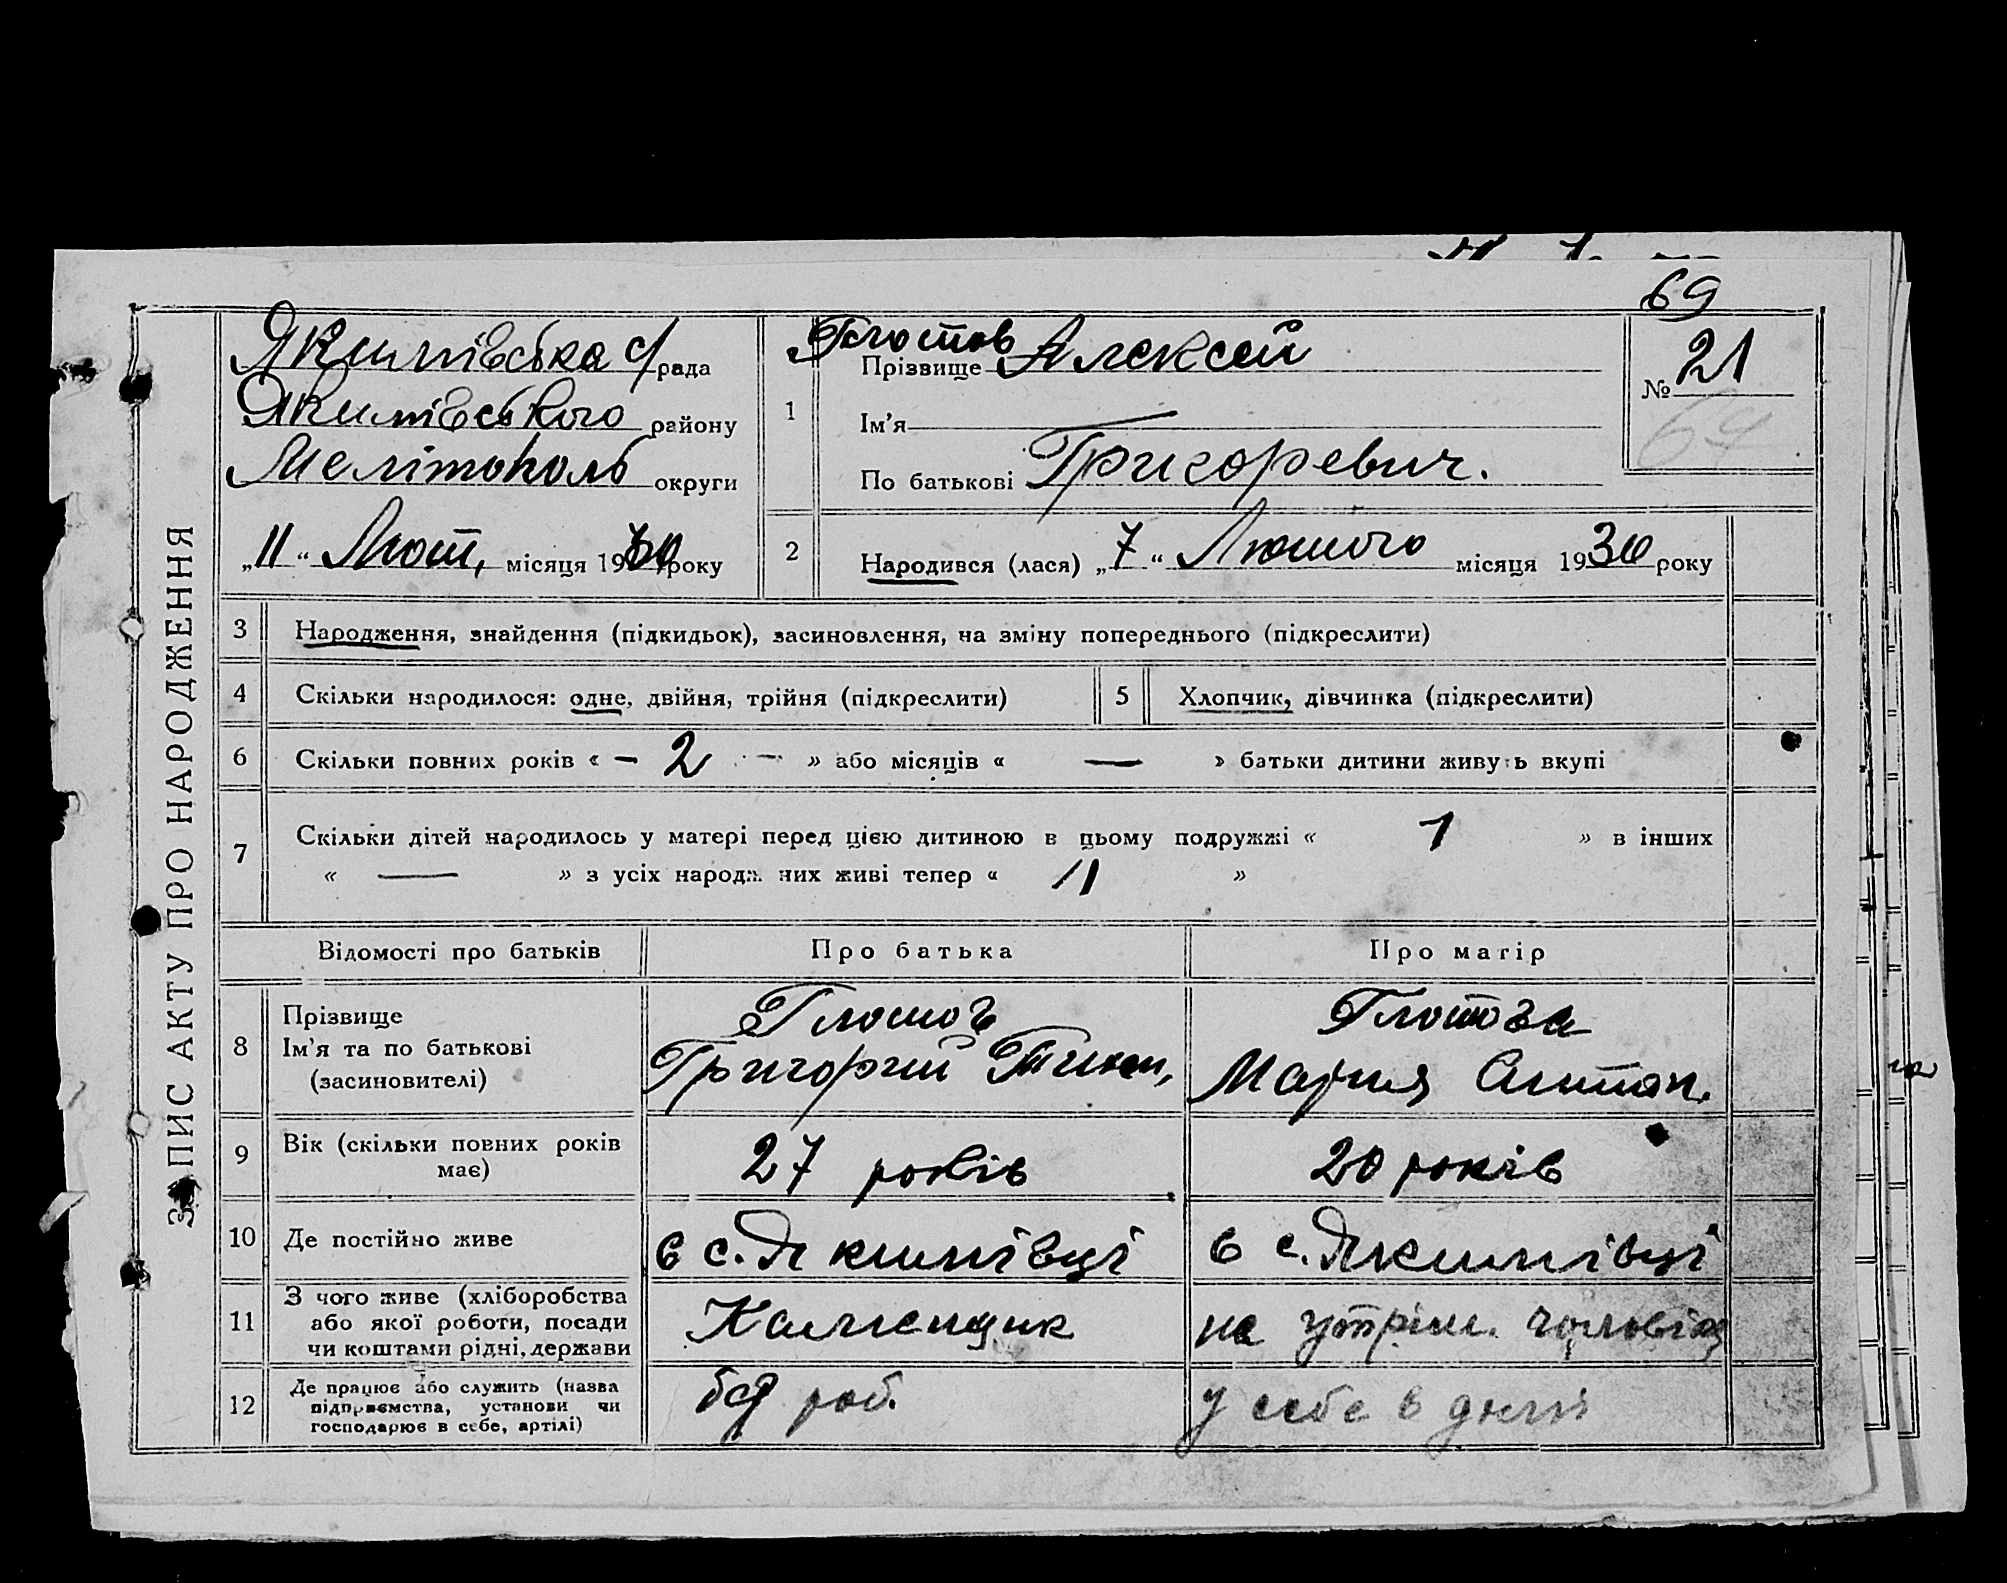 69
ЗАПИС АКТУ ПРО НАРОДЖЕННЯ
Якимівська с/рада
Якимівського району
Мелітополь округи
„11“ Лют, місяця 1930 року
1
Глотов
Прізвище Алексей
Ім'я —
По батькові Григоревич.
№ 21
69
2 Народився (лася) „7“ Лютого місяця 1930 року
3 Народження, знайдення (підкидьок), засиновлення, на зміну попереднього (підкреслити)
4 Скільки народилося: одне, двійня, трійня (підкреслити)
5 Хлопчик, дівчинка (підкреслити)
6 Скільки повних років « – 2 – » або місяців « — » батьки дитини живуть вкупі
7 Скільки дітей народилось у матері перед цією дитиною в цьому подружжі « 1 » в інших
« — » з усіх народжених живі тепер « »
Відомості про батьків Про батька Про матір
8 Прізвище
Ім'я та по батькові
(засиновителі)
Глотов
Григорий
Глотова
Мария Антон.
9 Вік (скільки повних років
має)
27 років
20 років
10 Де постійно живе
в с. Якимівці
в с. Якимівці
11 З чого живе (хліборобства
або якої роботи, посади
чи коштами рідні, держави
Каменщик
на утрим. чоловіка
12 Де працює або служить (назва
підприємства, установи чи
господарює в себе, артілі)
роб.
у себе в